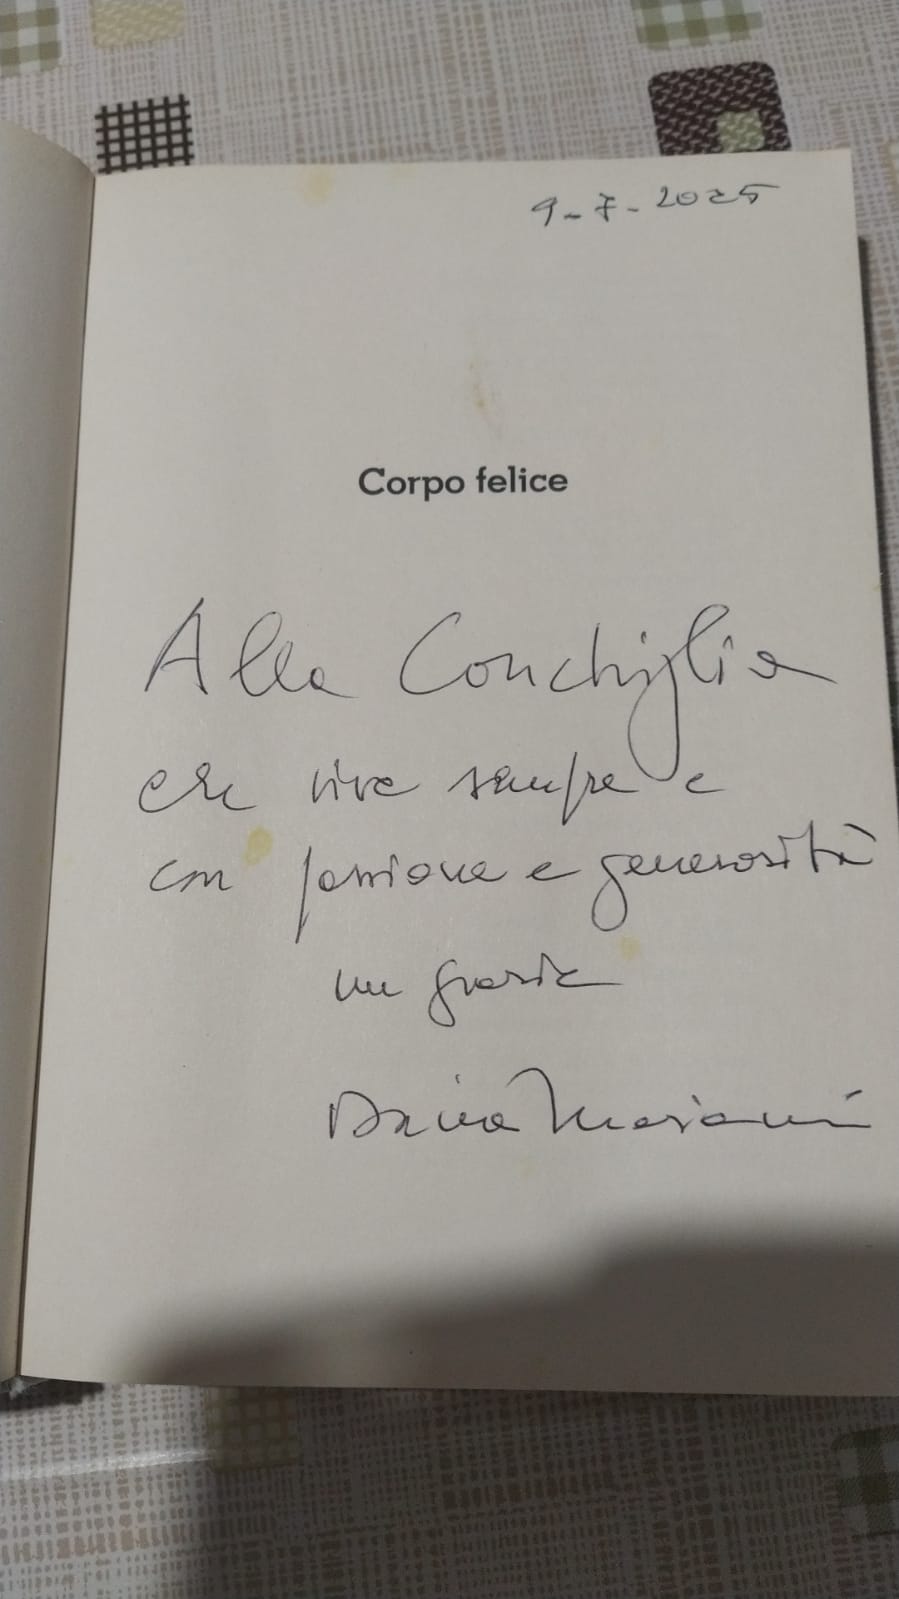 9-7-2025
Corpo felice
Alla Conchiglia
che vive sempre e
con passione e generosità
un grazie
Dacia Maraini